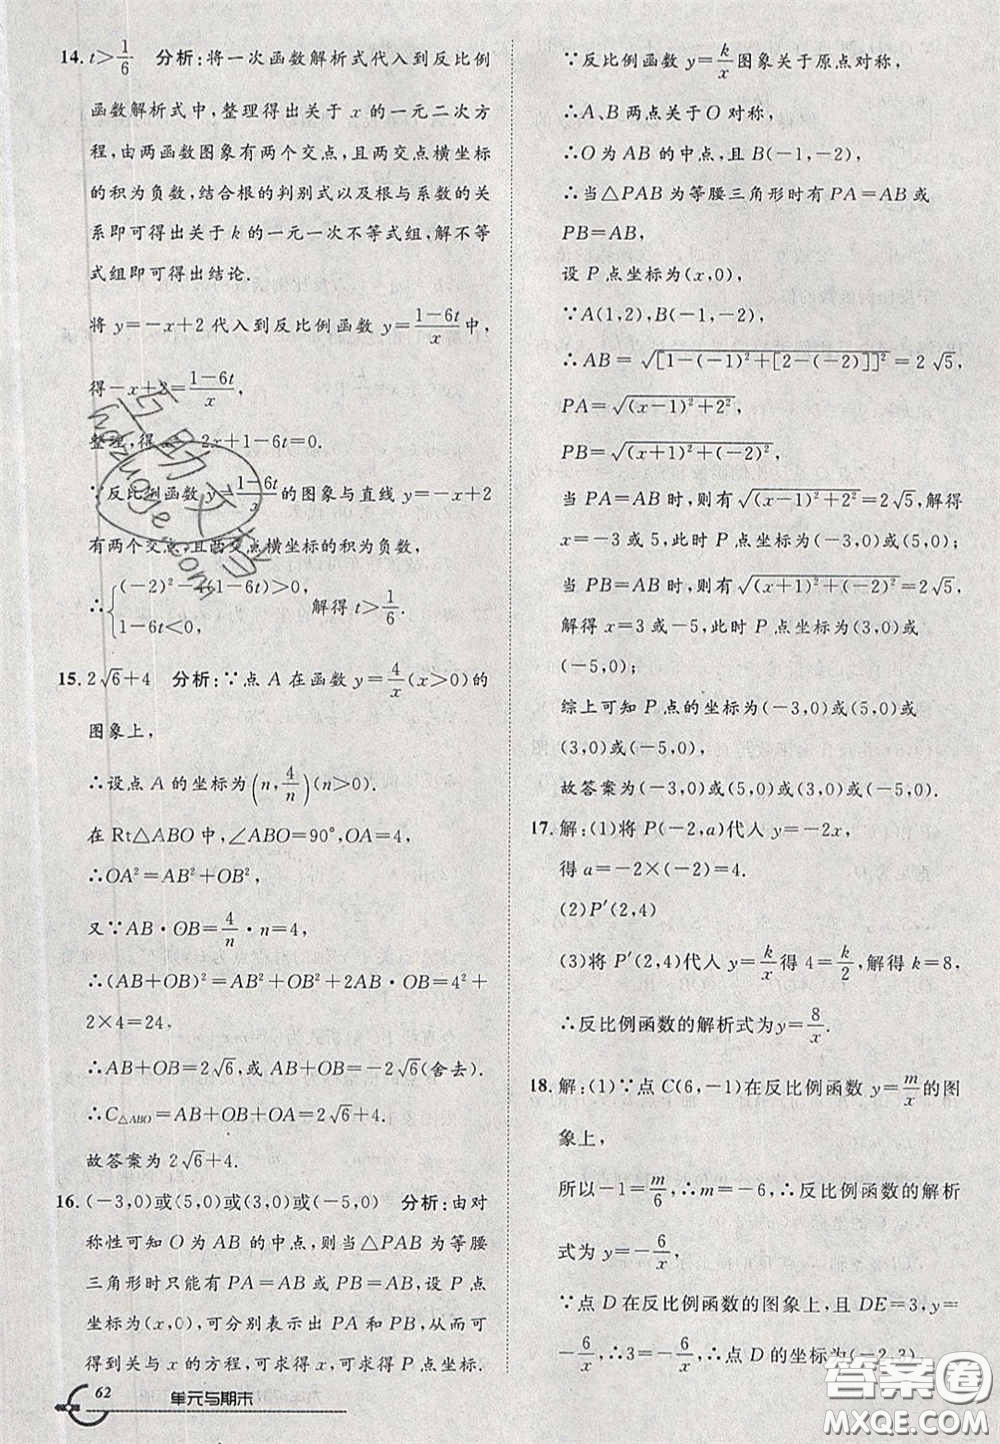 14. t>1/6 分析:将一次函数解析式代入到反比例
函数解析式中,整理得出关于 x 的一元二次方
程,由两函数图象有两个交点,且两交点横坐标
的积为负数,结合根的判别式以及根与系数的关
系即可得出关于 k 的一元一次不等式组,解不等
式组即可得出结论.
将 y=-x+2 代入到反比例函数 y=(1-6t)/x 中,
得 -x+2=(1-6t)/x,
整理,得 2x+1-6t=0.
∵反比例函数 y=(1-6t)/x 的图象与直线 y=-x+2
有两个交点,且两交点横坐标的积为负数,
∴{(-2)²-4(1-6t)>0, 1-6t<0, 解得 t>1/6.
15. 2√6+4 分析:∵点 A 在函数 y=4/x (x>0)的
图象上,
∴设点 A 的坐标为(n,4/n)(n>0).
在 Rt△ABO 中,∠ABO=90°,OA=4,
∴OA²=AB²+OB²,
又∵AB·OB=4/n·n=4,
∴(AB+OB)²=AB²+OB²+2AB·OB=4²+
2×4=24,
∴AB+OB=2√6,或 AB+OB=-2√6(舍去).
∴C△ABO=AB+OB+OA=2√6+4.
故答案为 2√6+4.
16. (-3,0)或(5,0)或(3,0)或(-5,0) 分析:由对
称性可知 O 为 AB 的中点,则当△PAB 为等腰
三角形时只能有 PA=AB 或 PB=AB,设 P 点
坐标为(x,0),可分别表示出 PA 和 PB,从而可
得到关与 x 的方程,可求得 x,可求得 P 点坐标.
62 单元与期末
∵反比例函数 y=k/x 图象关于原点对称,
∴A、B 两点关于 O 对称,
∴O 为 AB 的中点,且 B(-1,-2),
∴当△PAB 为等腰三角形时有 PA=AB 或
PB=AB,
设 P 点坐标为(x,0),
∵A(1,2),B(-1,-2),
∴AB=√([1-(-1)²+[2-(-2)]]²)=2√5,
PA=√((x-1)²+2²),
PB=√((x+1)²+(-2)²),
当 PA=AB 时,则有√((x-1)²+2²)=2√5,解得
x=-3 或 5,此时 P 点坐标为(-3,0)或(5,0);
当 PB=AB 时,则有√((x+1)²+(-2)²)=2√5,
解得 x=3 或-5,此时 P 点坐标为(3,0)或
(-5,0);
综上可知 P 点的坐标为(-3,0)或(5,0)或
(3,0)或(-5,0),
故答案为(-3,0)或(5,0)或(3,0)或(-5,0).
17. 解:(1)将 P(-2,a)代人 y=-2x,
得 a=-2×(-2)=4,
(2)P′(2,4)
(3)将 P′(2,4)代人 y=k/x 得 4=k/2,解得 k=8,
∴反比例函数的解析式为 y=8/x.
18. 解:(1)∵点 C(6,-1)在反比例函数 y=m/x 的图
象上,
所以-1=m/6,∴m=-6,∴反比例函数的解析
式为 y=-6/x,
∵点 D 在反比例函数的图象上,且 DE=3,y=
-6/x,∴3=-6/x,∴点 D 的坐标为(-2,3)
答案圈
MXQE.COM
hdzuoye.com